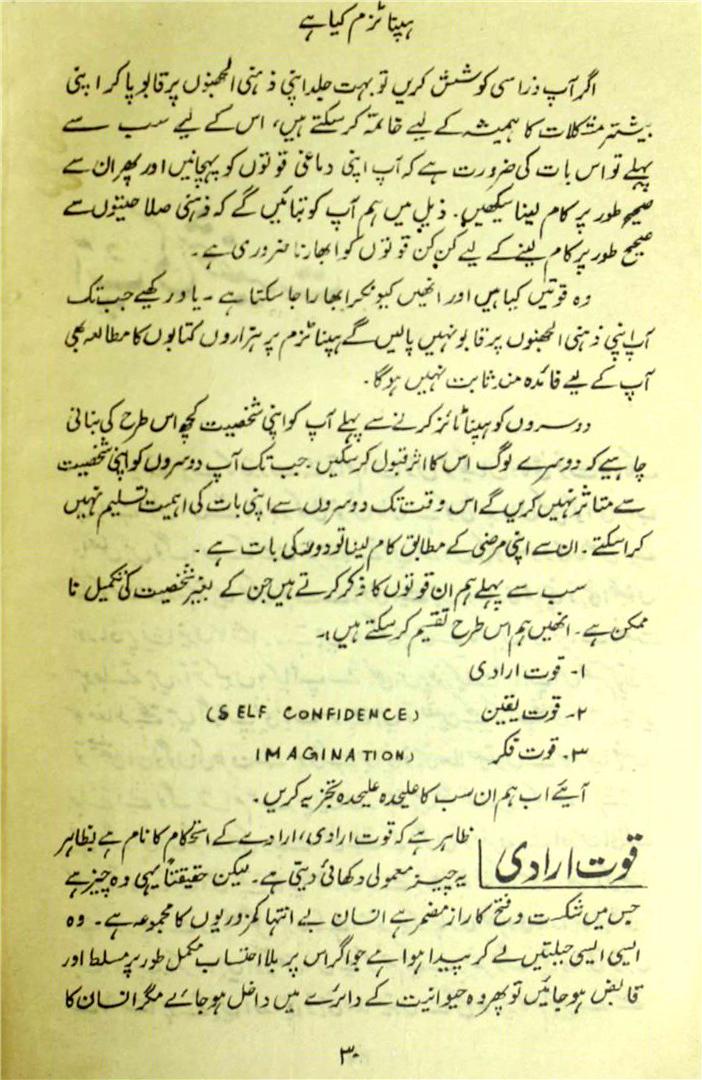 ہپناٹزم کیا ہے
اگر آپ ذرا سی کوشش کریں تو بہت جلد اپنی ذہنی الجھنوں پر قابو پا کر اپنی
بیشتر مشکلات کا ہمیشہ کے لیے خاتمہ کر سکتے ہیں، اس کے لیے سب سے
پہلے تو اس بات کی ضرورت ہے کہ آپ اپنی دماغی قوتوں کو پہچانیں اور پھر ان سے
صحیح طور پر کام لینا سیکھیں۔ ذیل میں ہم آپ کو بتائیں گے کہ ذہنی صلاحیتوں سے
صحیح طور پر کام لینے کے لیے کن کن قوتوں کو ابھارنا ضروری ہے۔
وہ قوتیں کیا ہیں اور انھیں کیونکر ابھارا جا سکتا ہے۔ یاد رکھیے جب تک
آپ اپنی ذہنی الجھنوں پر قابو نہیں پالیں گے ہپناٹزم پر ہزاروں کتابوں کا مطالعہ بھی
آپ کے لیے فائدہ مند ثابت نہیں ہوگا۔
دوسروں کو ہپناٹائز کرنے سے پہلے آپ کو اپنی شخصیت کچھ اس طرح کی بنانی
چاہیے کہ دوسرے لوگ اس کا اثر قبول کر سکیں۔ جب تک آپ دوسروں کو اپنی شخصیت
سے متاثر نہیں کریں گے اس وقت تک دوسروں سے اپنی بات کی اہمیت تسلیم نہیں
کرا سکتے۔ ان سے اپنی مرضی کے مطابق کام لینا تو دور کی بات ہے۔
سب سے پہلے ہم ان قوتوں کا ذکر کرتے ہیں جن کے بغیر شخصیت کی تکمیل نا
ممکن ہے۔ انھیں ہم اس طرح تقسیم کر سکتے ہیں:۔
۱۔ قوت ارادی
۲۔ قوت یقین (SELF CONFIDENCE)
۳۔ قوت فکر (IMAGINATION)
آیئے اب ہم ان سب کا علیحدہ علیحدہ تجزیہ کریں۔
قوت ارادی
ظاہر ہے کہ قوت ارادی، ارادے کے استحکام کا نام ہے بظاہر
یہ چیز معمولی دکھائی دیتی ہے۔ لیکن حقیقتاً یہی وہ چیز ہے
جس میں شکست و فتح کا راز مضمر ہے انسان بے انتہا کمزوریوں کا مجموعہ ہے۔ وہ
ایسی ایسی جبلتیں لے کر پیدا ہوا ہے جو اگر اس پر بلا احتساب مکمل طور پر مسلط اور
قابض ہو جائیں تو پھر وہ حیوانیت کے دائرے میں داخل ہو جائے مگر انسان کا
۳۰